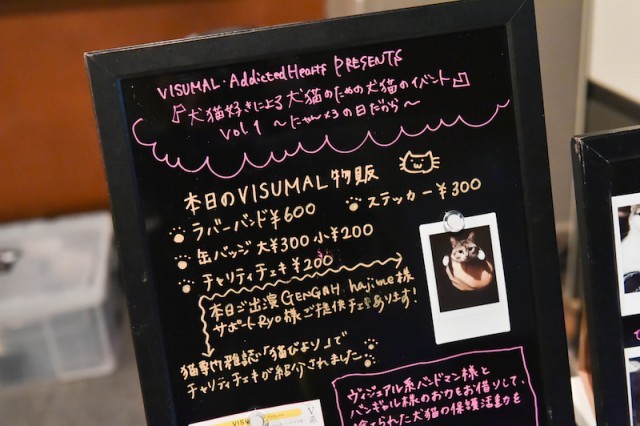 VISUMAL・AddictedHearts PRESENTS
『犬猫好きによる犬猫のための犬猫のイベント』
vol.1 〜にゃんメタの日だから〜
本日のVISUMAL物販
ラバーバンド¥600
ステッカー¥300
缶バッジ 大¥300 小¥200
チャリティチェキ¥200
本日ご出演GENGAH. hajime様
サポートRyo様ご提供チェキあります!
猫専門雑誌「猫びより」で
チャリティチェキが紹介されました
ヴィジュアル系バンドマン様と
バンギャル様のお力をお借りして、
捨てられた犬猫の保護活動を